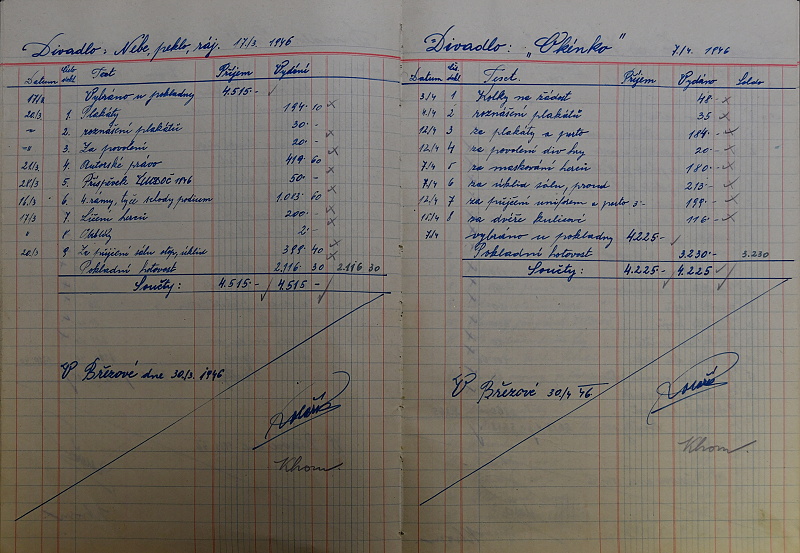 Divadlo: Nebe, peklo, ráj. 17/3. 1946
Datum Text Příjem Vydání
17/3 Vybráno u pokladny 4.515·-
20/3 1. Plakáty 194·10
-"- 2. roznášení plakátů 30·-
-"- 3. Za povolení 20·-
21/3 4. Autorské právo 419·60
21/3 5. Příspěvek 1946 50·-
16/3 6. 4 rámy, tyče schody podium 1.013·60
17/3 7. Líčení herců 200·-
" 8. 2·-
20/3 9. Za půjčení sálu otop, úklid 399·40
Pokladní hotovost 2.116·30 2.116 30
Součty: 4.515·- 4.515·-
V Březové dne 30/3. 1946
Khom
Divadlo: „Okénko" 7/4. 1946
Datum Čís. dokl. Text. Příjem Vydáno Saldo
3/4 1 Kolky na žádost 48·-
4/4 2 roznášení plakátů 35
12/4 3 za plakáty a porto 184·-
12/4 4 za povolení div. hry 20·-
7/4 5 za maskování herců 180·-
7/4 6 za úklid sálu, proud 213·-
12/4 7 za půjčení uniforem a porto 3·- 199·-
15/4 8 za dveře kulisové 116·-
7/4 vybráno u pokladny 4225·-
Pokladní hotovost 3.230·- 3.230
Součty: 4.225·- 4.225
V Březové 30/4 46.
Khom